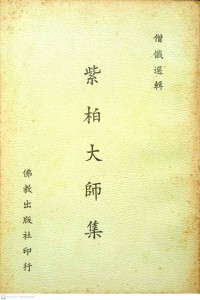 僧懺選輯
紫柏大師集
佛教出版社印行